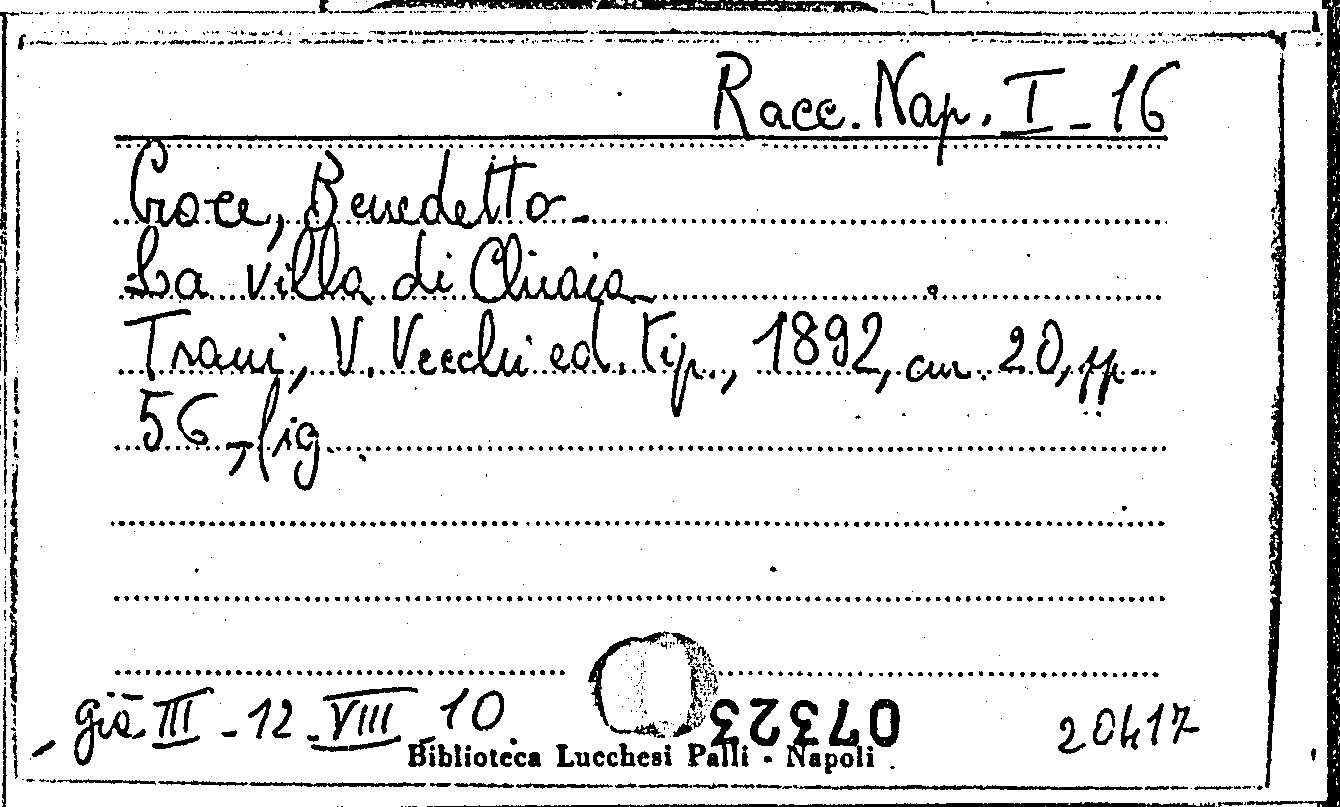 Racc. Nap. I - 16
Croce, Benedetto -
La villa di Chiaia
Trani, V. Vecchi ed. tip., 1892, cm. 20, pp.
56, fig.
già III - 12 - VIII - 10.
07323
20417
Biblioteca Lucchesi Palli - Napoli